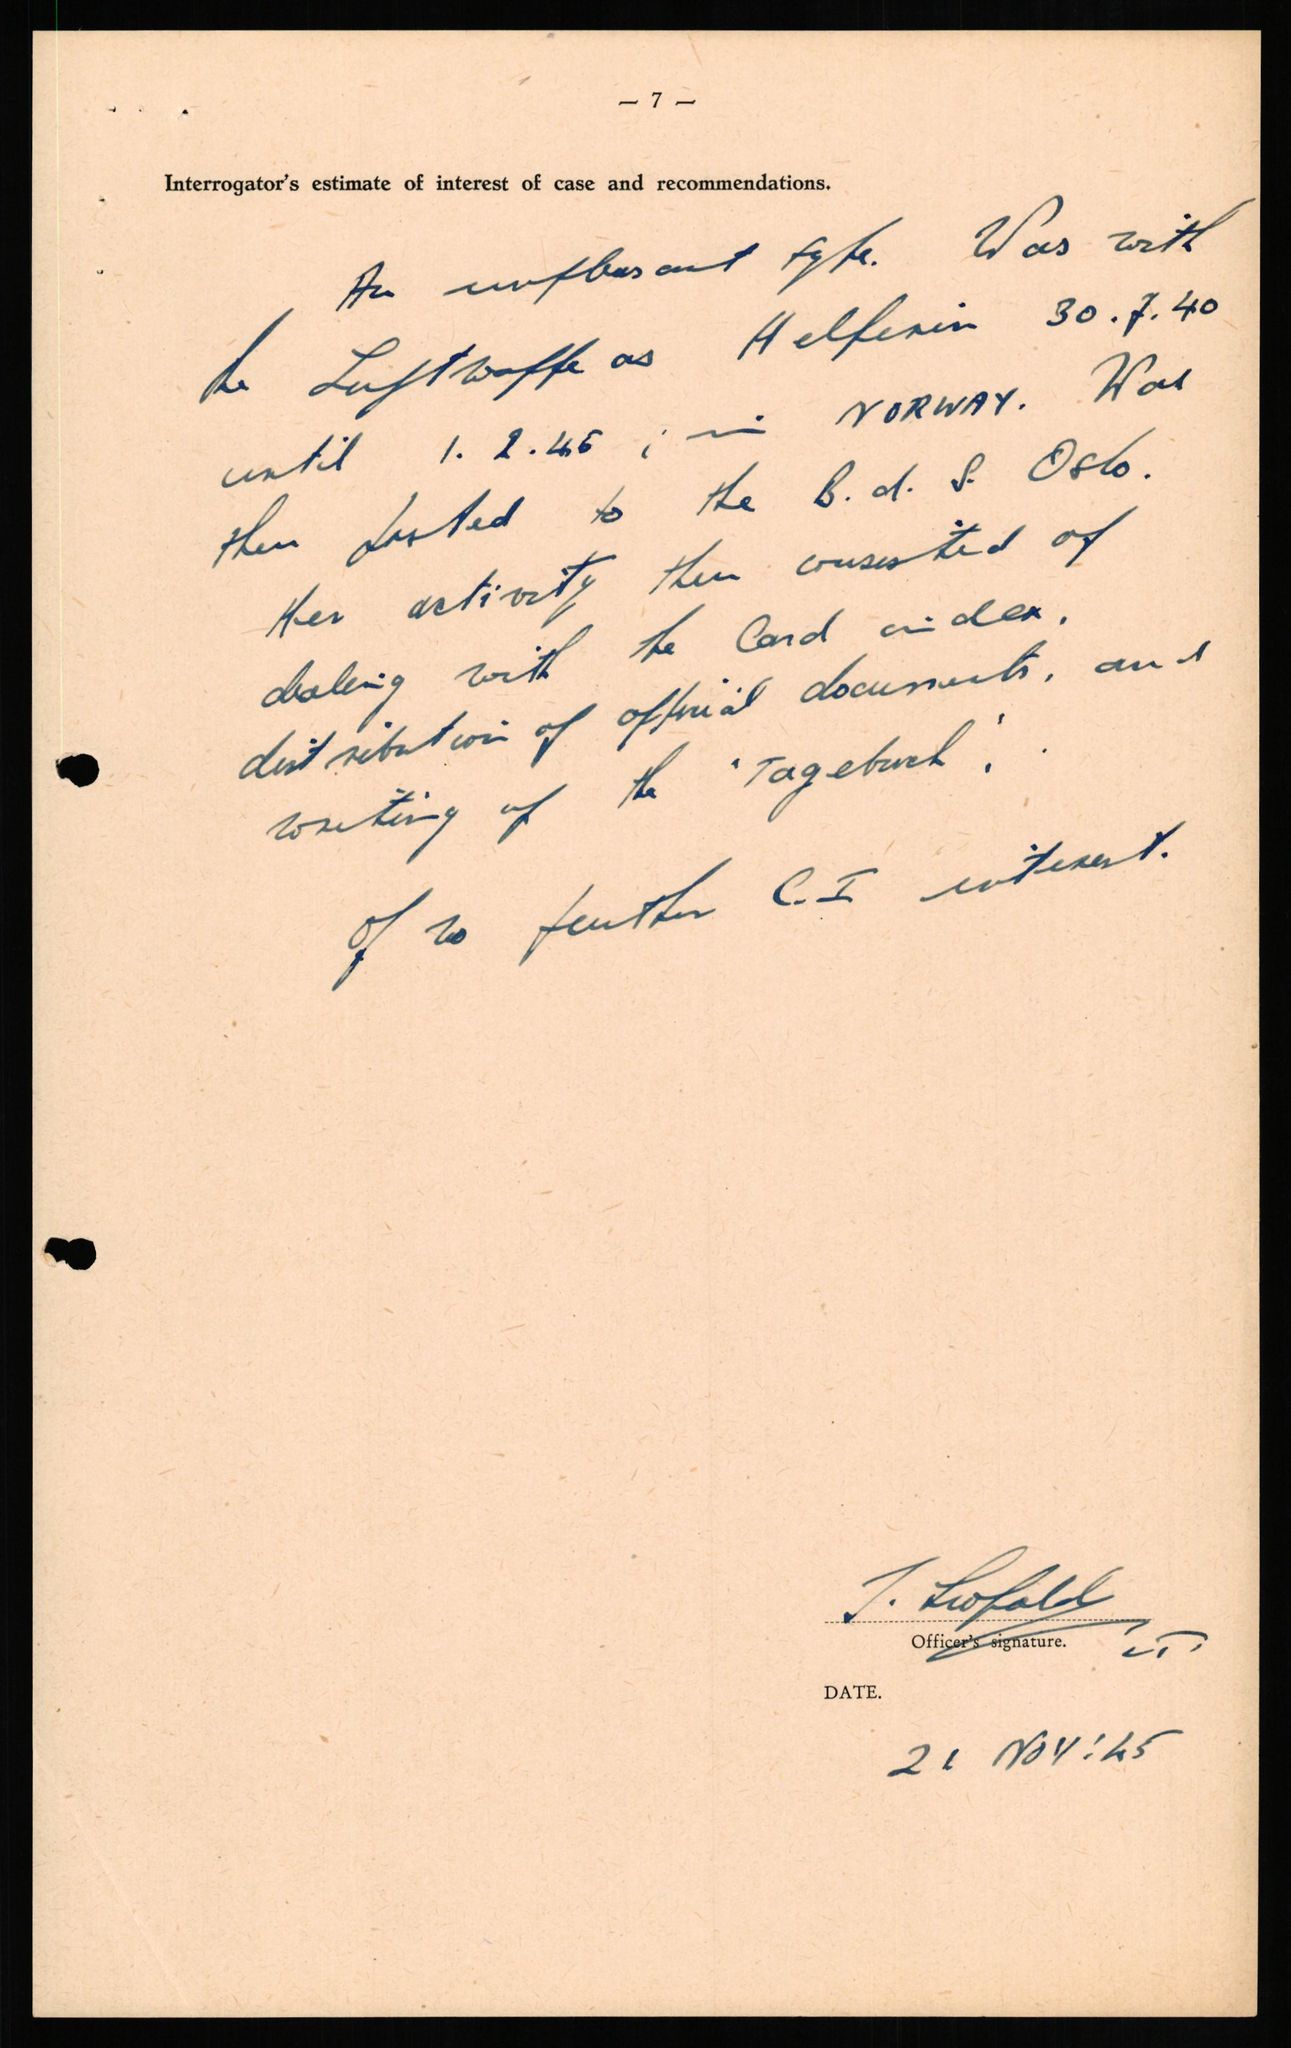 — 7 —
Interrogator's estimate of interest of case and recommendations.
An unpleasant type. Was with
the Luftwaffe as Helferin 30.7.40
until 1.2.45 ; in NORWAY. Was
then posted to the B.d.S. Oslo.
Her activity then consisted of
dealing with the Card index,
distribution of official documents, and
writing of the 'Tagebuch'.
Of no further C.I interest.
T. Leopold
Officer's signature.
LT.
DATE.
21 NOV: 45